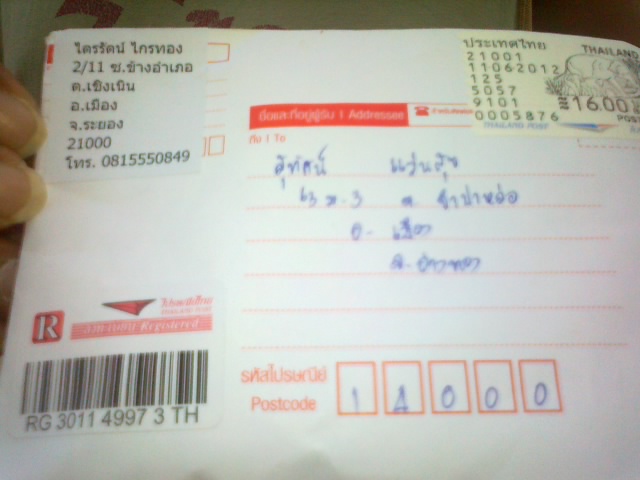 ไตรรัตน์ ไกรทอง
2/11 ซ.ข้างอำเภอ
ต.เชิงเนิน
อ.เมือง
จ.ระยอง
21000
โทร. 0815550849
ประเทศไทย THAILAND
21001
11062012
125
5057
9101
0005876
16.00
POST
THAILAND POST
ชื่อและที่อยู่ผู้รับ | Addressee
ถึง | To
สุทัศน์ แว่นสุข
63 ม.3 ต. จำปาหล่อ
อ. เมือง
จ. อ่างทอง
R
ไปรษณีย์ไทย
THAILAND POST
ลงทะเบียน Registered
RG 3011 4997 3 TH
รหัสไปรษณีย์
Postcode
14000